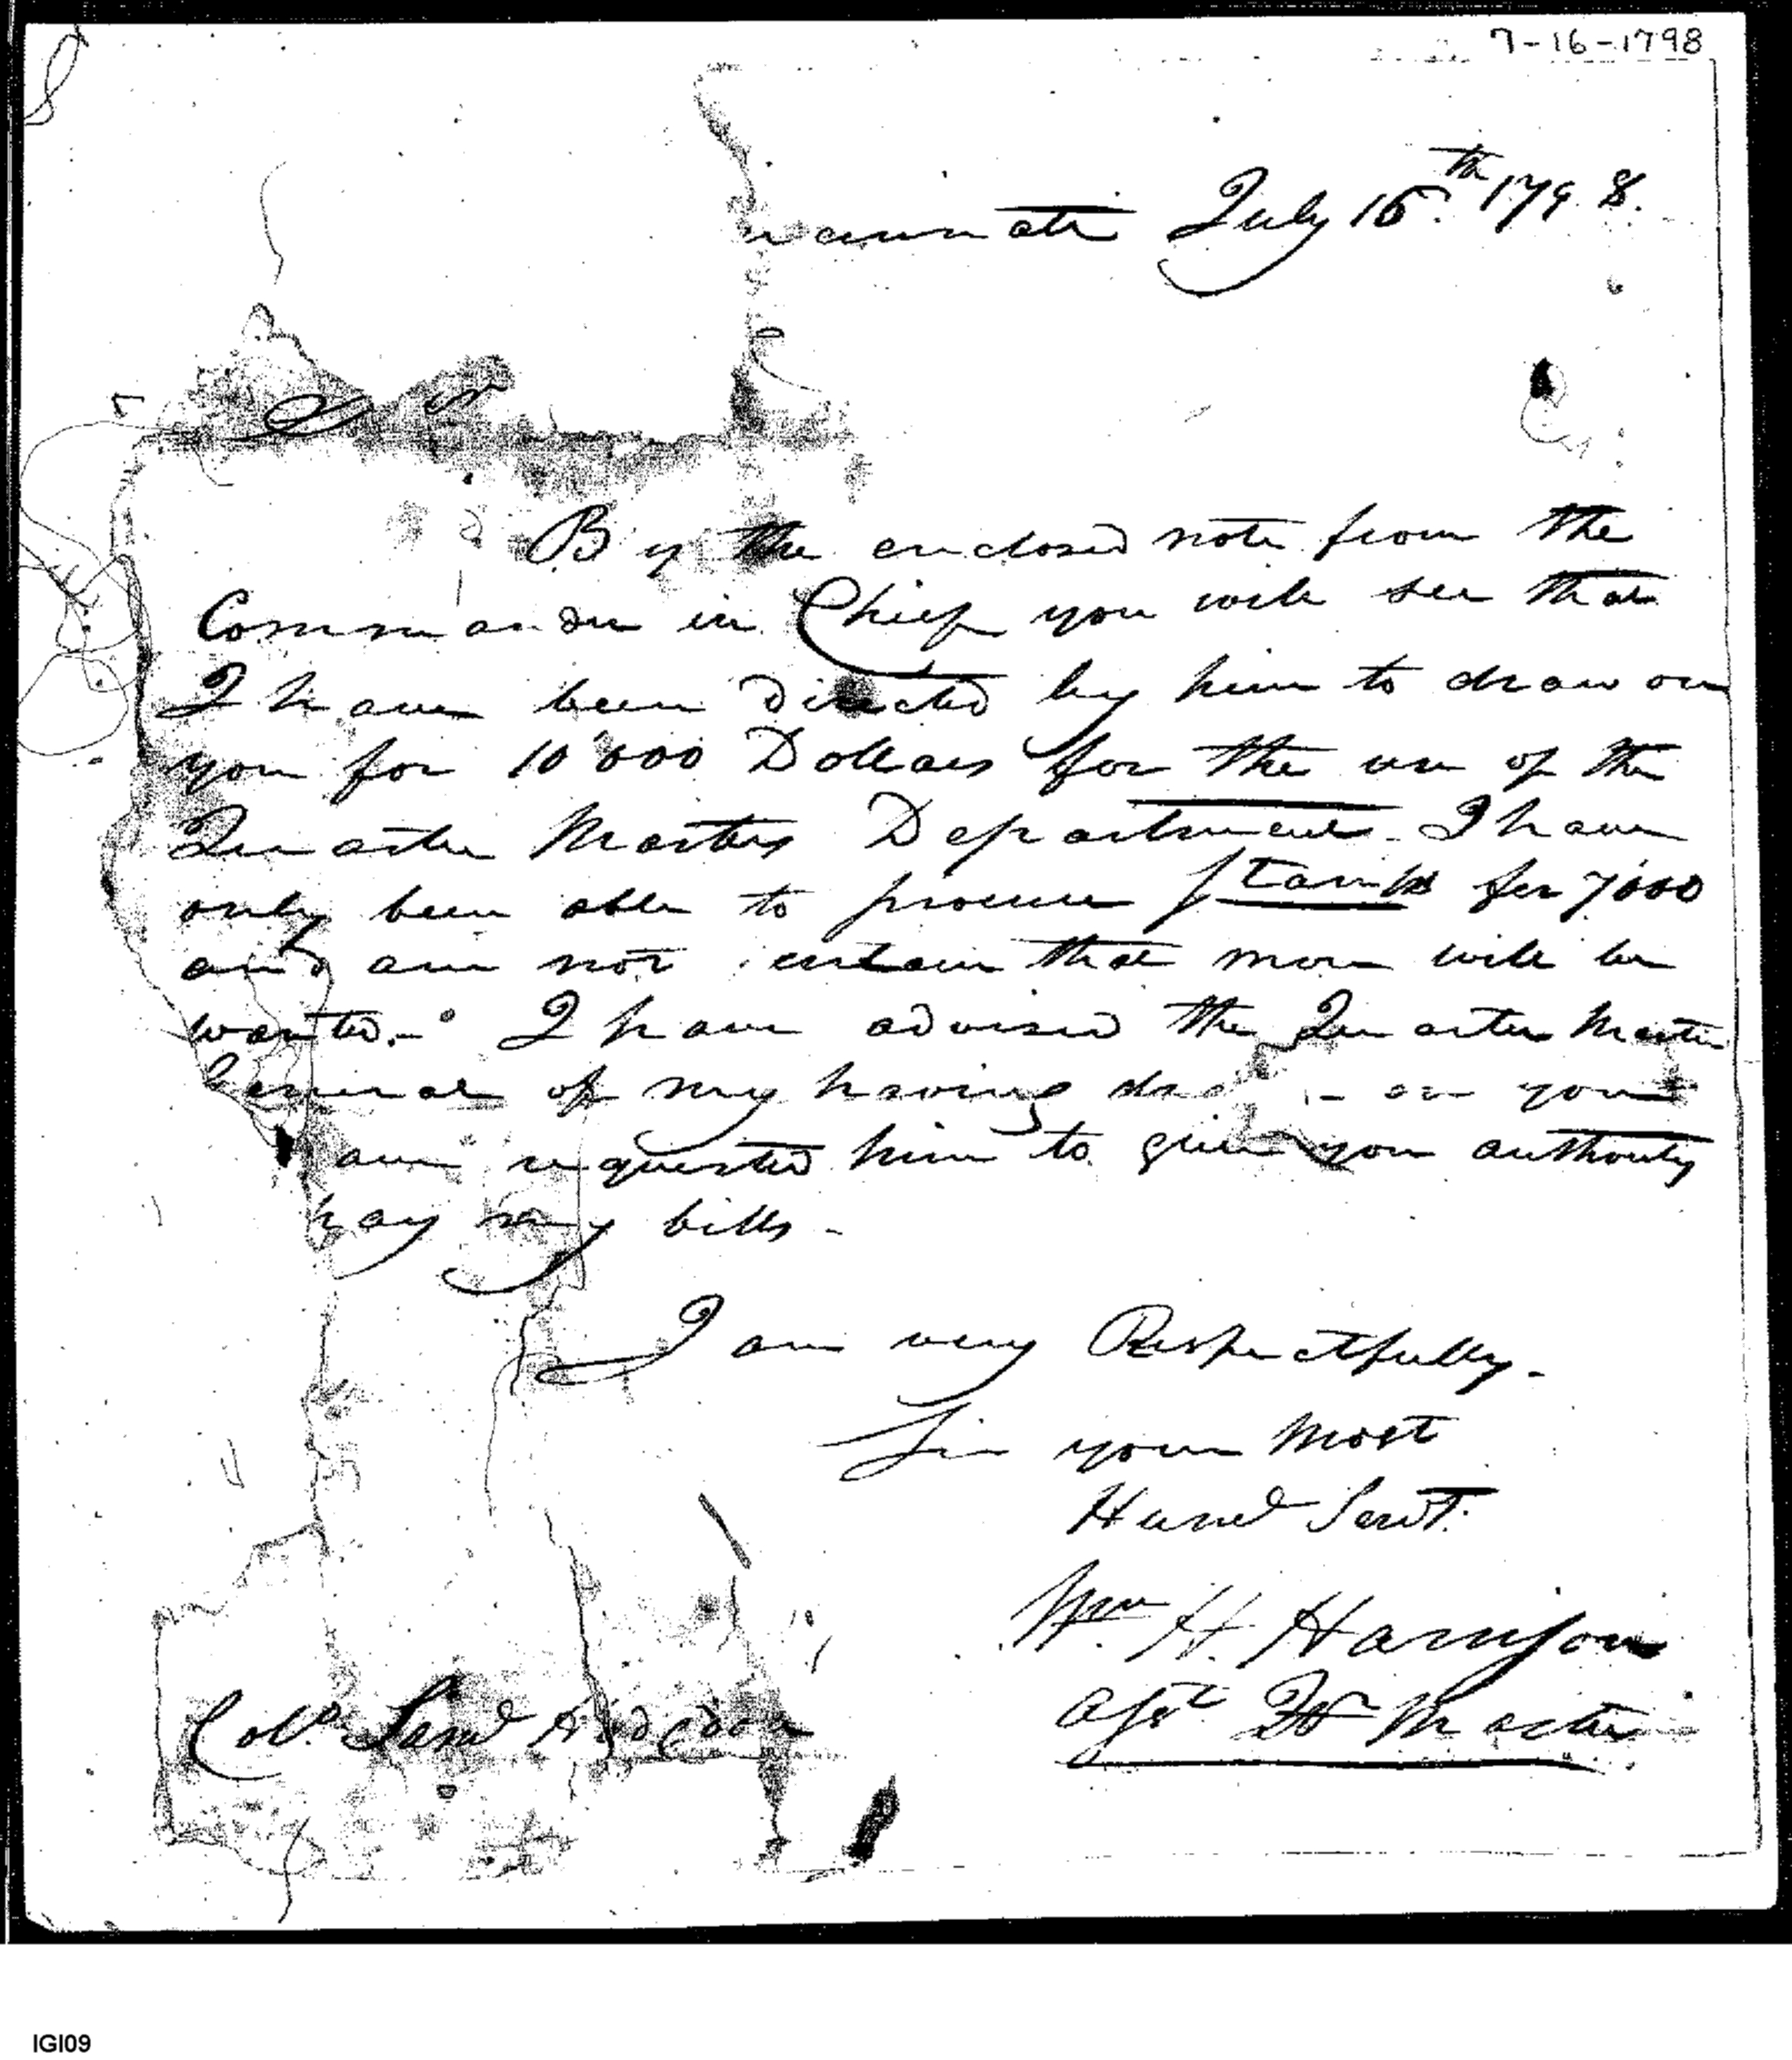 7-16-1798
July 16th 1798.
Sir
By the enclosed note from the
Commander in Chief you will see that
I have been directed by him to draw on
you for 10'000 Dollars for the use of the
Quarter Masters Department - I have
only been able to procure for 7'000
and am not certain that more will be
wanted. - I have advised the Quarter Master
General of my having on you
requested him to give you authority
pay my bills -
I am very Respectfully -
Sir your Most
Humel Servt.
Wm. H. Harrison
Asst Qr Master
Colo. Saml Hodgdon
IGI09